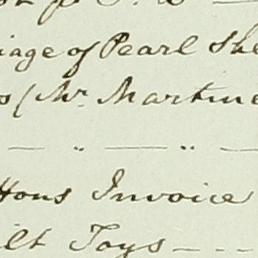 iage of Pearl She
s (Mr. Martine
— " — " —
Hons Invoice
ilt Toys - - -